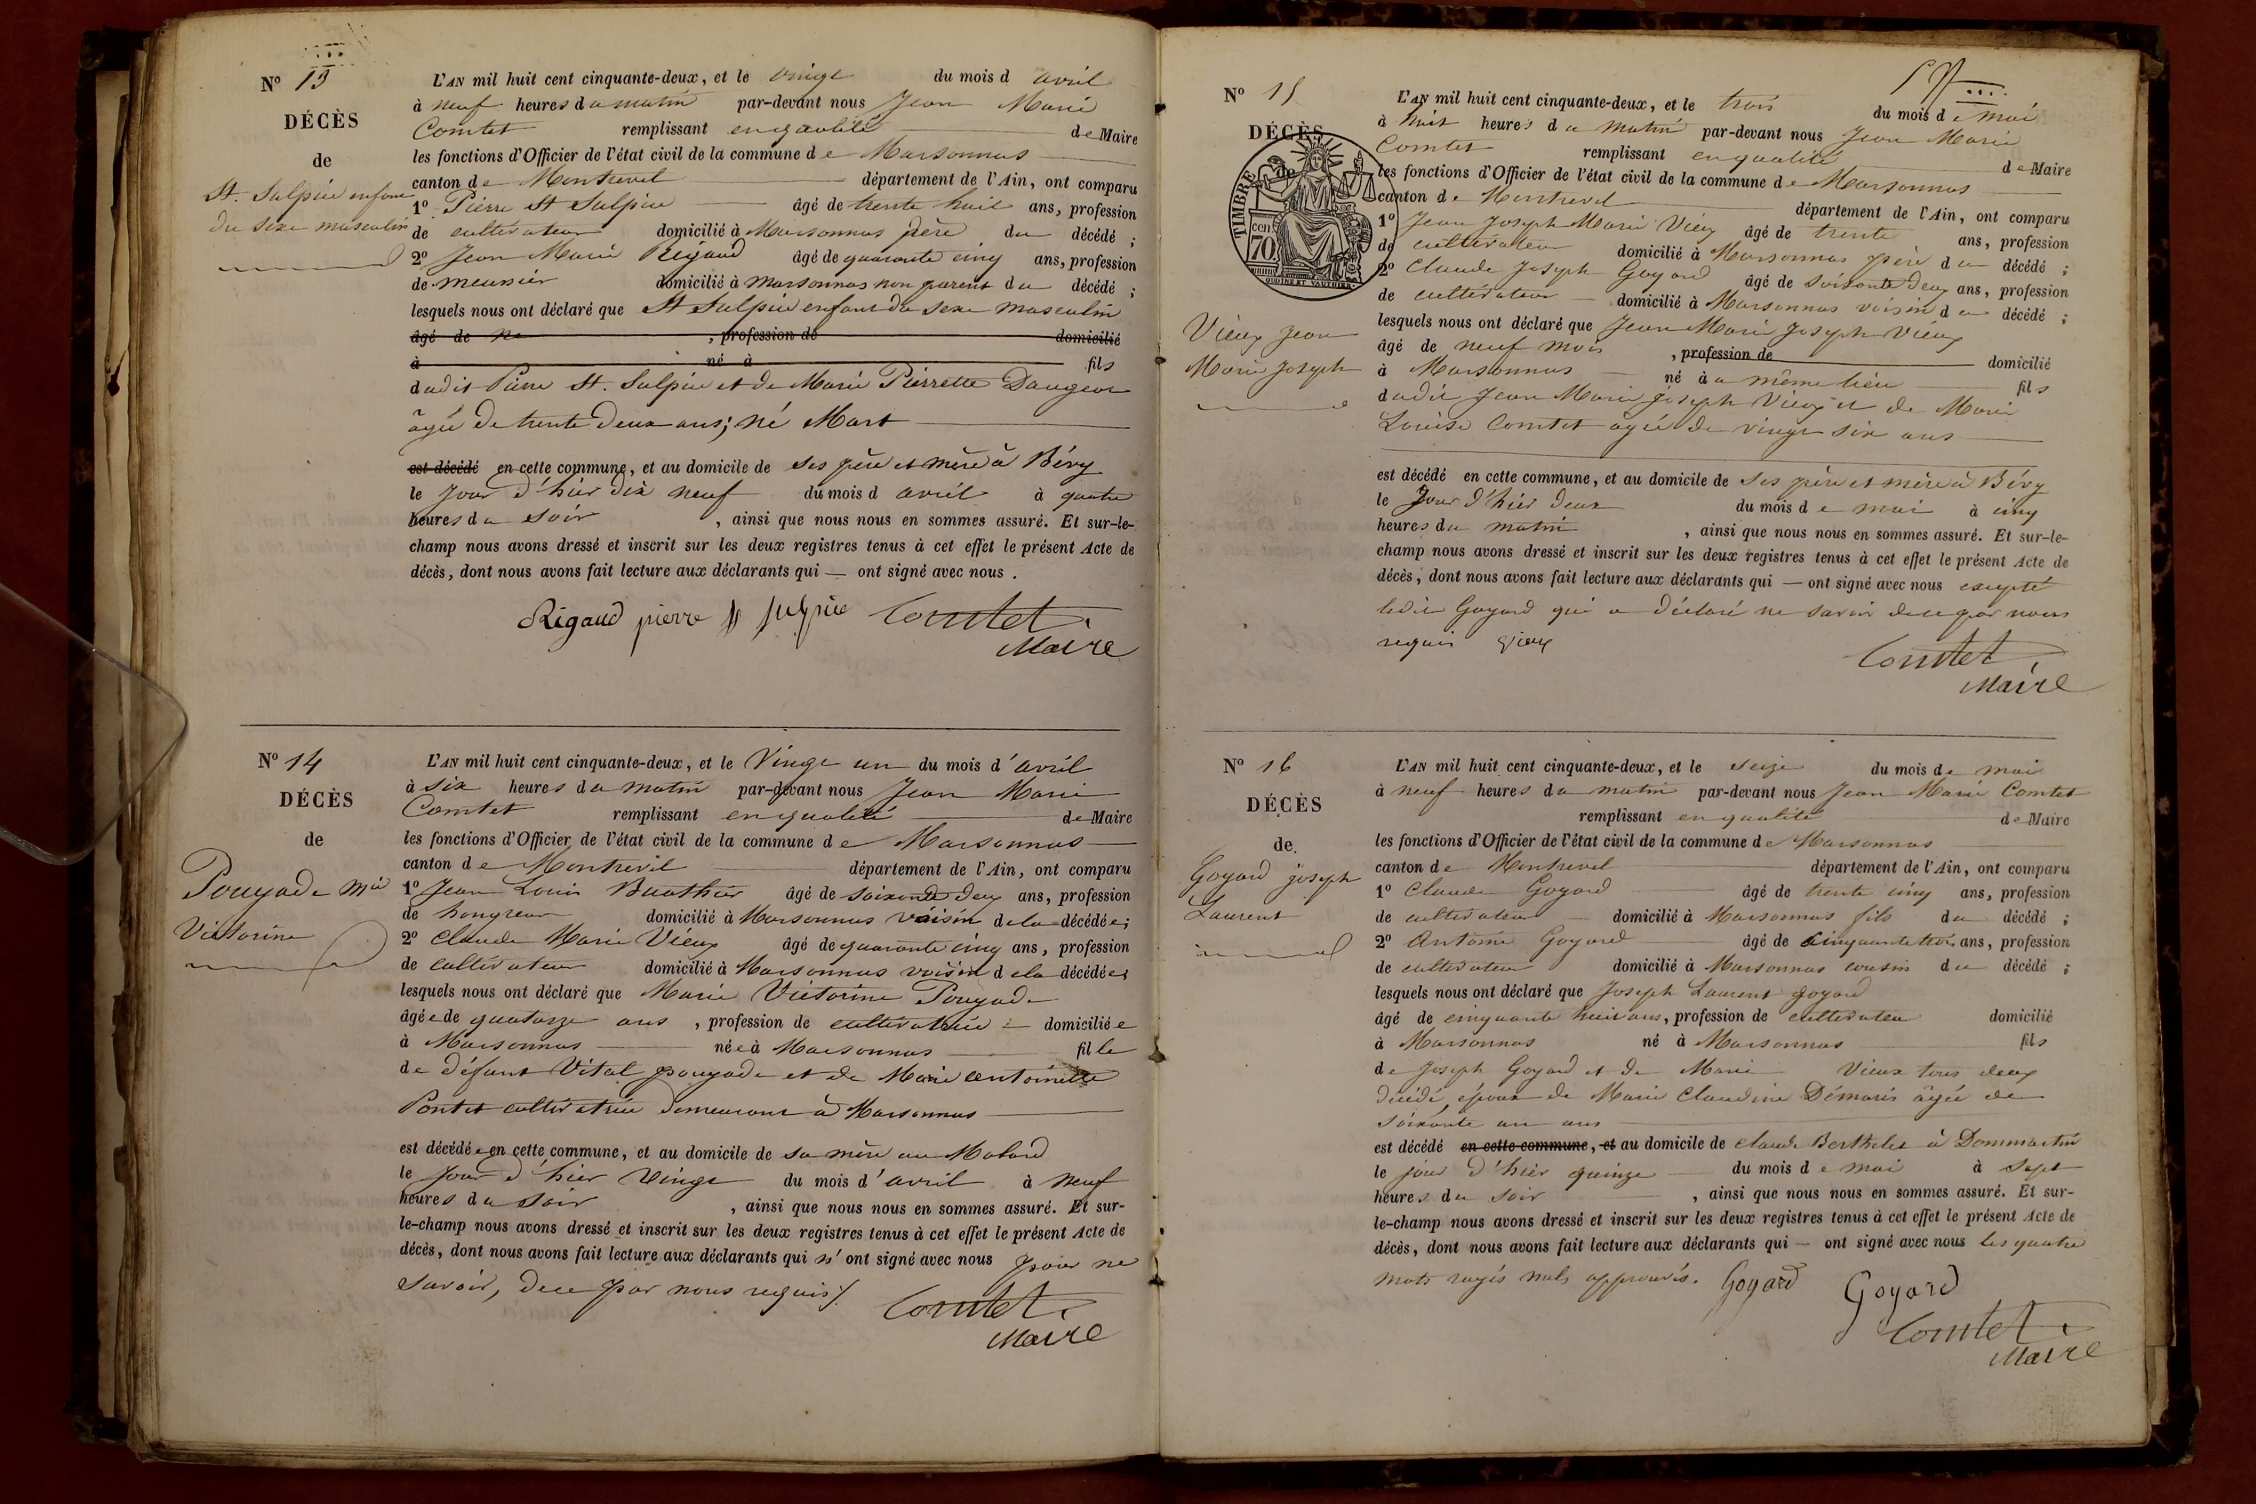 Nº 13
DÉCÈS
de
St. Sulpice enfant
du sexe masculin
L'AN mil huit cent cinquante-deux, et le vingt du mois d avril
à neuf heures du matin par-devant nous Jean Marie
Comtet remplissant en qualité de Maire
les fonctions d'Officier de l'état civil de la commune de Marsonnas
canton de Montrevel département de l'Ain, ont comparu
1º Pierre St Sulpice âgé de trente huit ans, profession
de cultivateur domicilié à Marsonnas père du décédé ;
2º Jean Marie Rigaud âgé de quarante cinq ans, profession
de meunier domicilié à Marsonnas non parent du décédé ;
lesquels nous ont déclaré que St Sulpice enfant du sexe masculin
âgé de ne , profession de domicilié
à né à fils
dudit Pierre St. Sulpice et de Marie Pierrette Daugeor
âgée de trente deux ans; né Mort
est décédé en cette commune, et au domicile de ses père et mère à Béry
le jour d'hier dix neuf du mois d avril à quatre
heures du soir , ainsi que nous nous en sommes assuré. Et sur-le-
champ nous avons dressé et inscrit sur les deux registres tenus à cet effet le présent Acte de
décès, dont nous avons fait lecture aux déclarants qui — ont signé avec nous .
Rigaud pierre st sulpice Comtet
Maire
Nº 14
DÉCÈS
de
Pouyade Mie
Victorine
L'AN mil huit cent cinquante-deux, et le vingt un du mois d'avril
à six heures du matin par-devant nous Jean Marie
Comtet remplissant en qualité de Maire
les fonctions d'Officier de l'état civil de la commune de Marsonnas
canton de Montrevel département de l'Ain, ont comparu
1º Jean Louis Buathier âgé de soixante deux ans, profession
de hongreur domicilié à Marsonnas voisin de la décédée;
2º Claude Marie Vieux âgé de quarante cinq ans, profession
de cultivateur domicilié à Marsonnas voisin de la décédée;
lesquels nous ont déclaré que Marie Victorine Pouyade
âgée de quatorze ans , profession de cultivatrice domiciliée
à Marsonnas née à Marsonnas fille
de défunt Vital pouyade et de Marie antoinette
Pontet cultivatrice demeurant à Marsonnas
est décédée en cette commune, et au domicile de sa mère au Molard
le jour d'hier vingt du mois d'avril à neuf
heures du soir , ainsi que nous nous en sommes assuré. Et sur-
le-champ nous avons dressé et inscrit sur les deux registres tenus à cet effet le présent Acte de
décès, dont nous avons fait lecture aux déclarants qui n'ont signé avec nous pour ne
savoir, de ce par nous requis.
Comtet
Maire
Nº 15
DÉCÈS
de
TIMBRE
cen
70
OUDINE ET VAUTHIER.
Vieux Jean
Marie Joseph
L'AN mil huit cent cinquante-deux, et le trois du mois de mai
à huit heures du matin par-devant nous Jean Marie
Comtet remplissant en qualité de Maire
les fonctions d'Officier de l'état civil de la commune de Marsonnas
canton de Montrevel département de l'Ain, ont comparu
1º Jean Joseph Marie Vieux âgé de trente ans, profession
de cultivateur domicilié à Marsonnas père du décédé ;
2º Claude Joseph Goyard âgé de soixante deux ans, profession
de cultivateur domicilié à Marsonnas voisin du décédé ;
lesquels nous ont déclaré que Jean Marie Joseph Vieux
âgé de neuf mois , profession de domicilié
à Marsonnas né à u même lieu fils
dudit Jean Marie Joseph Vieux et de Marie
Louise Comtet âgée de vingt six ans
est décédé en cette commune, et au domicile de ses père et mère à Béry
le jour d'hier deux du mois de mai à cinq
heures du matin , ainsi que nous nous en sommes assuré. Et sur-le-
champ nous avons dressé et inscrit sur les deux registres tenus à cet effet le présent Acte de
décès, dont nous avons fait lecture aux déclarants qui — ont signé avec nous excepté
ledit Goyard qui a déclaré ne savoir de ce par nous
requis vieux
Comtet
Maire
Nº 16
DÉCÈS
de
Goyard joseph
Laurent
L'AN mil huit cent cinquante-deux, et le seize du mois de mai
à neuf heures du matin par-devant nous Jean Marie Comtet
remplissant en qualité de Maire
les fonctions d'Officier de l'état civil de la commune de Marsonnas
canton de Montrevel département de l'Ain, ont comparu
1º Claude Goyard âgé de trente cinq ans, profession
de cultivateur domicilié à Marsonnas fils du décédé ;
2º Antoine Goyard âgé de cinquante trois ans, profession
de cultivateur domicilié à Marsonnas cousin du décédé ;
lesquels nous ont déclaré que Joseph Laurent goyard
âgé de cinquante huit ans, profession de cultivateur domicilié
à Marsonnas né à Marsonnas fils
de Joseph Goyard et de Marie Vieux tous deux
décédé, époux de Marie Claudine Démaris âgée de
soixante un ans
est décédé en cette commune, et au domicile de claude Berthelet à Dommartin
le jour d'hier quinze du mois de mai à sept
heures du soir , ainsi que nous nous en sommes assuré. Et sur-
le-champ nous avons dressé et inscrit sur les deux registres tenus à cet effet le présent Acte de
décès, dont nous avons fait lecture aux déclarants qui — ont signé avec nous les quatre
mots rayés nuls approuvés. Goyard Goyard
Comtet
Maire